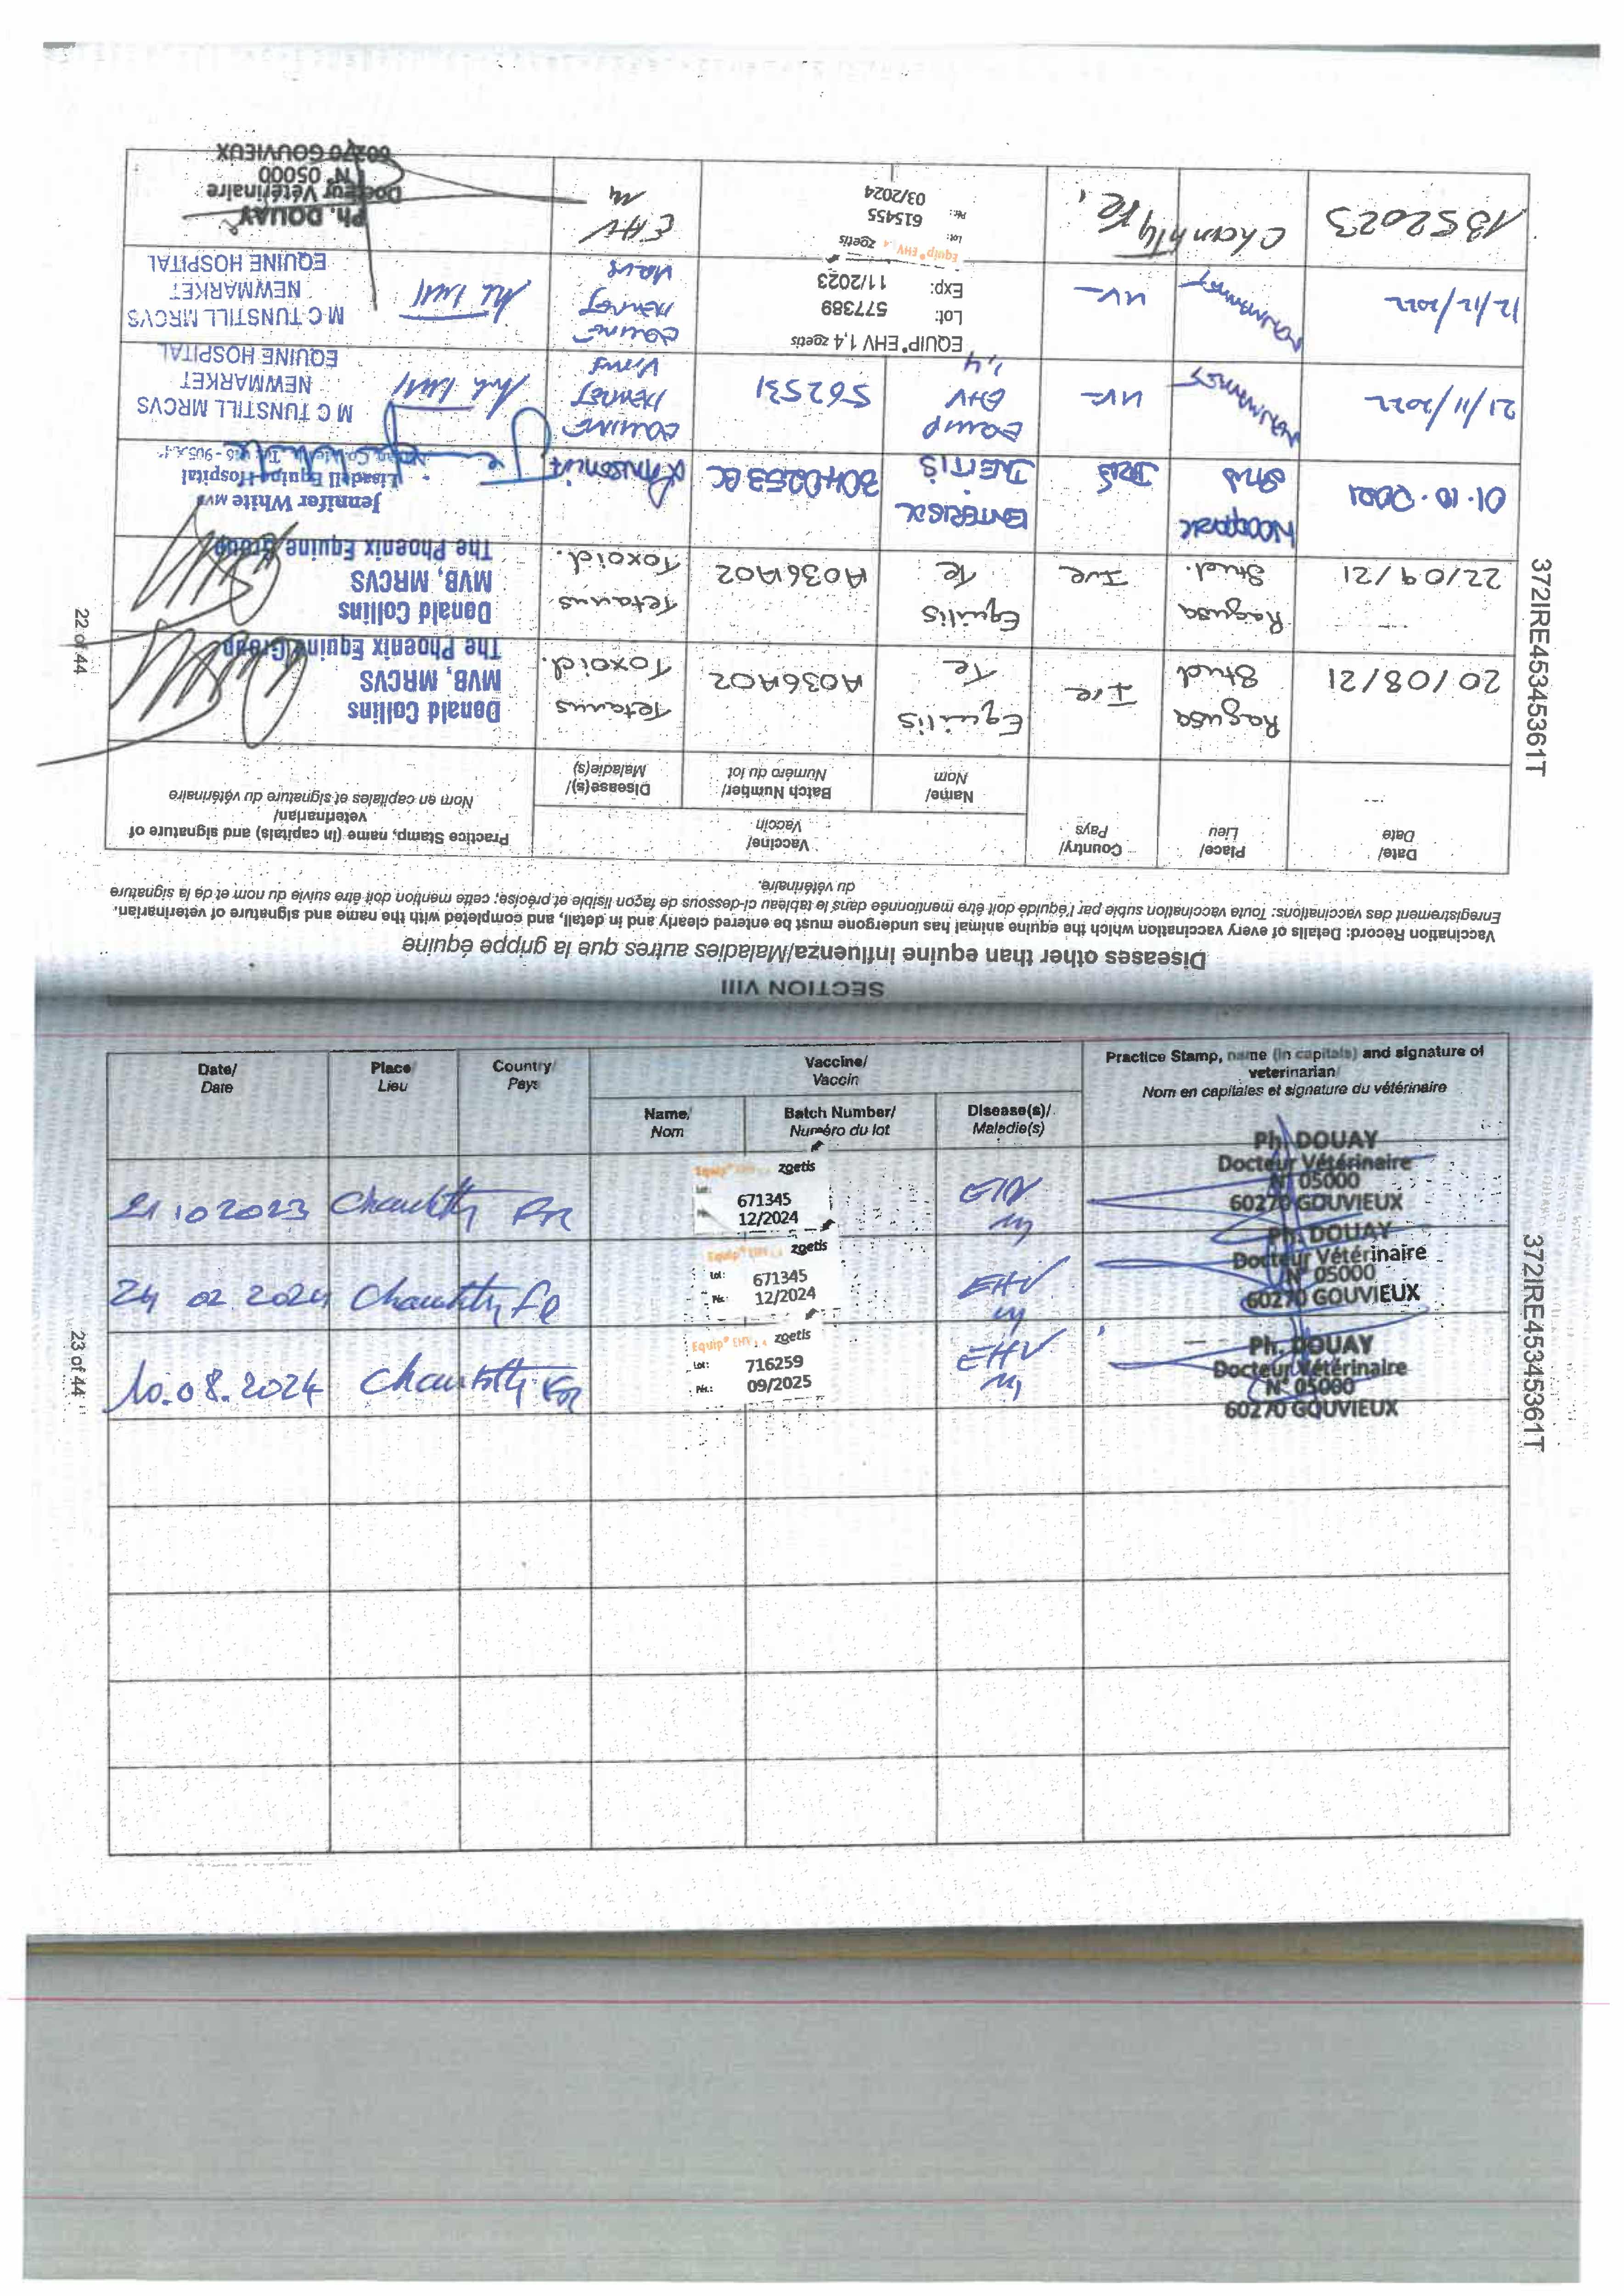 SECTION VIII
Diseases other than equine influenza/Maladies autres que la grippe équine
Vaccination Record: Details of every vaccination which the equine animal has undergone must be entered clearly and in detail, and completed with the name and signature of veterinarian.
Enregistrement des vaccinations: Toute vaccination subie par l'équidé doit être mentionnée dans le tableau ci-dessous de façon lisible et précise; cette mention doit être suivie du nom et de la signature
du vétérinaire.
Date/
Date
Place/
Lieu
Country/
Pays
Vaccine/
Vaccin
Name/
Nom
Batch Number/
Numéro du lot
Diseases(s)/
Maladie(s)
Practice Stamp, name (in capitals) and signature of
veterinarian/
Nom en capitales et signature du vétérinaire
20/08/21
Ragusa
Stud
Ire
Equilis
Te
A036A02
Tetanus
Toxoid.
Donald Collins
MVB, MRCVS
The Phoenix Equine Group
22/09/21
Ragusa
Stud.
Ire
Equilis
Te
A036A02
Tetanus
Toxoid.
Donald Collins
MVB, MRCVS
The Phoenix Equine Group
01.10.2021
Stud
ENTERISOL
ILEITIS
Jennifer White MVB
Lisadell Equine Hospital
21/11/2022
NEWMARKET
UK
EQUIP
EHV
1,4
562531
EQUINE
HERPES
VIRUS
M C TUNSTILL MRCVS
NEWMARKET
EQUINE HOSPITAL
12/12/2022
NEWMARKET
UK
EQUIP® EHV 1,4 zoetis
Lot: 577389
Exp: 11/2023
EQUINE
HERPES
VIRUS
M C TUNSTILL MRCVS
NEWMARKET
EQUINE HOSPITAL
13 5 2023
Chantilly
Fr.
Equip® EHV 1,4 zoetis
Lot: 615455
Pér.: 03/2024
EHV
Ph. DOUAY
Docteur Vétérinaire
N° 05000
60270 GOUVIEUX
372IRE45345361T
22 of 44
Date/
Date
Place/
Lieu
Country/
Pays
Vaccine/
Vaccin
Name/
Nom
Batch Number/
Numéro du lot
Disease(s)/
Maladie(s)
Practice Stamp, name (in capitals) and signature of
veterinarian/
Nom en capitales et signature du vétérinaire
21 10 2023 Chantilly FR
Equip® EHV zoetis
Lot: 671345
Pér.: 12/2024
Ph. DOUAY
Docteur Vétérinaire
N° 05000
60270 GOUVIEUX
24 02 2024 Chantilly FR
Equip® EHV 1,4 zoetis
Lot: 671345
Pér.: 12/2024
EHV
Ph. DOUAY
Docteur Vétérinaire
N° 05000
60270 GOUVIEUX
10.08.2024 Chantilly FR
Equip® EHV 1,4 zoetis
Lot: 716259
Pér.: 09/2025
EHV
Ph. DOUAY
Docteur Vétérinaire
N° 05000
60270 GOUVIEUX
372IRE45345361T
23 of 44